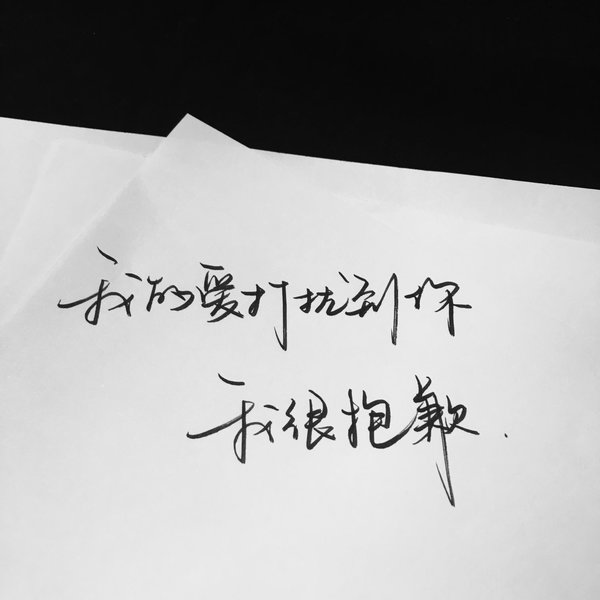 我的爱打扰到你
我很抱歉.